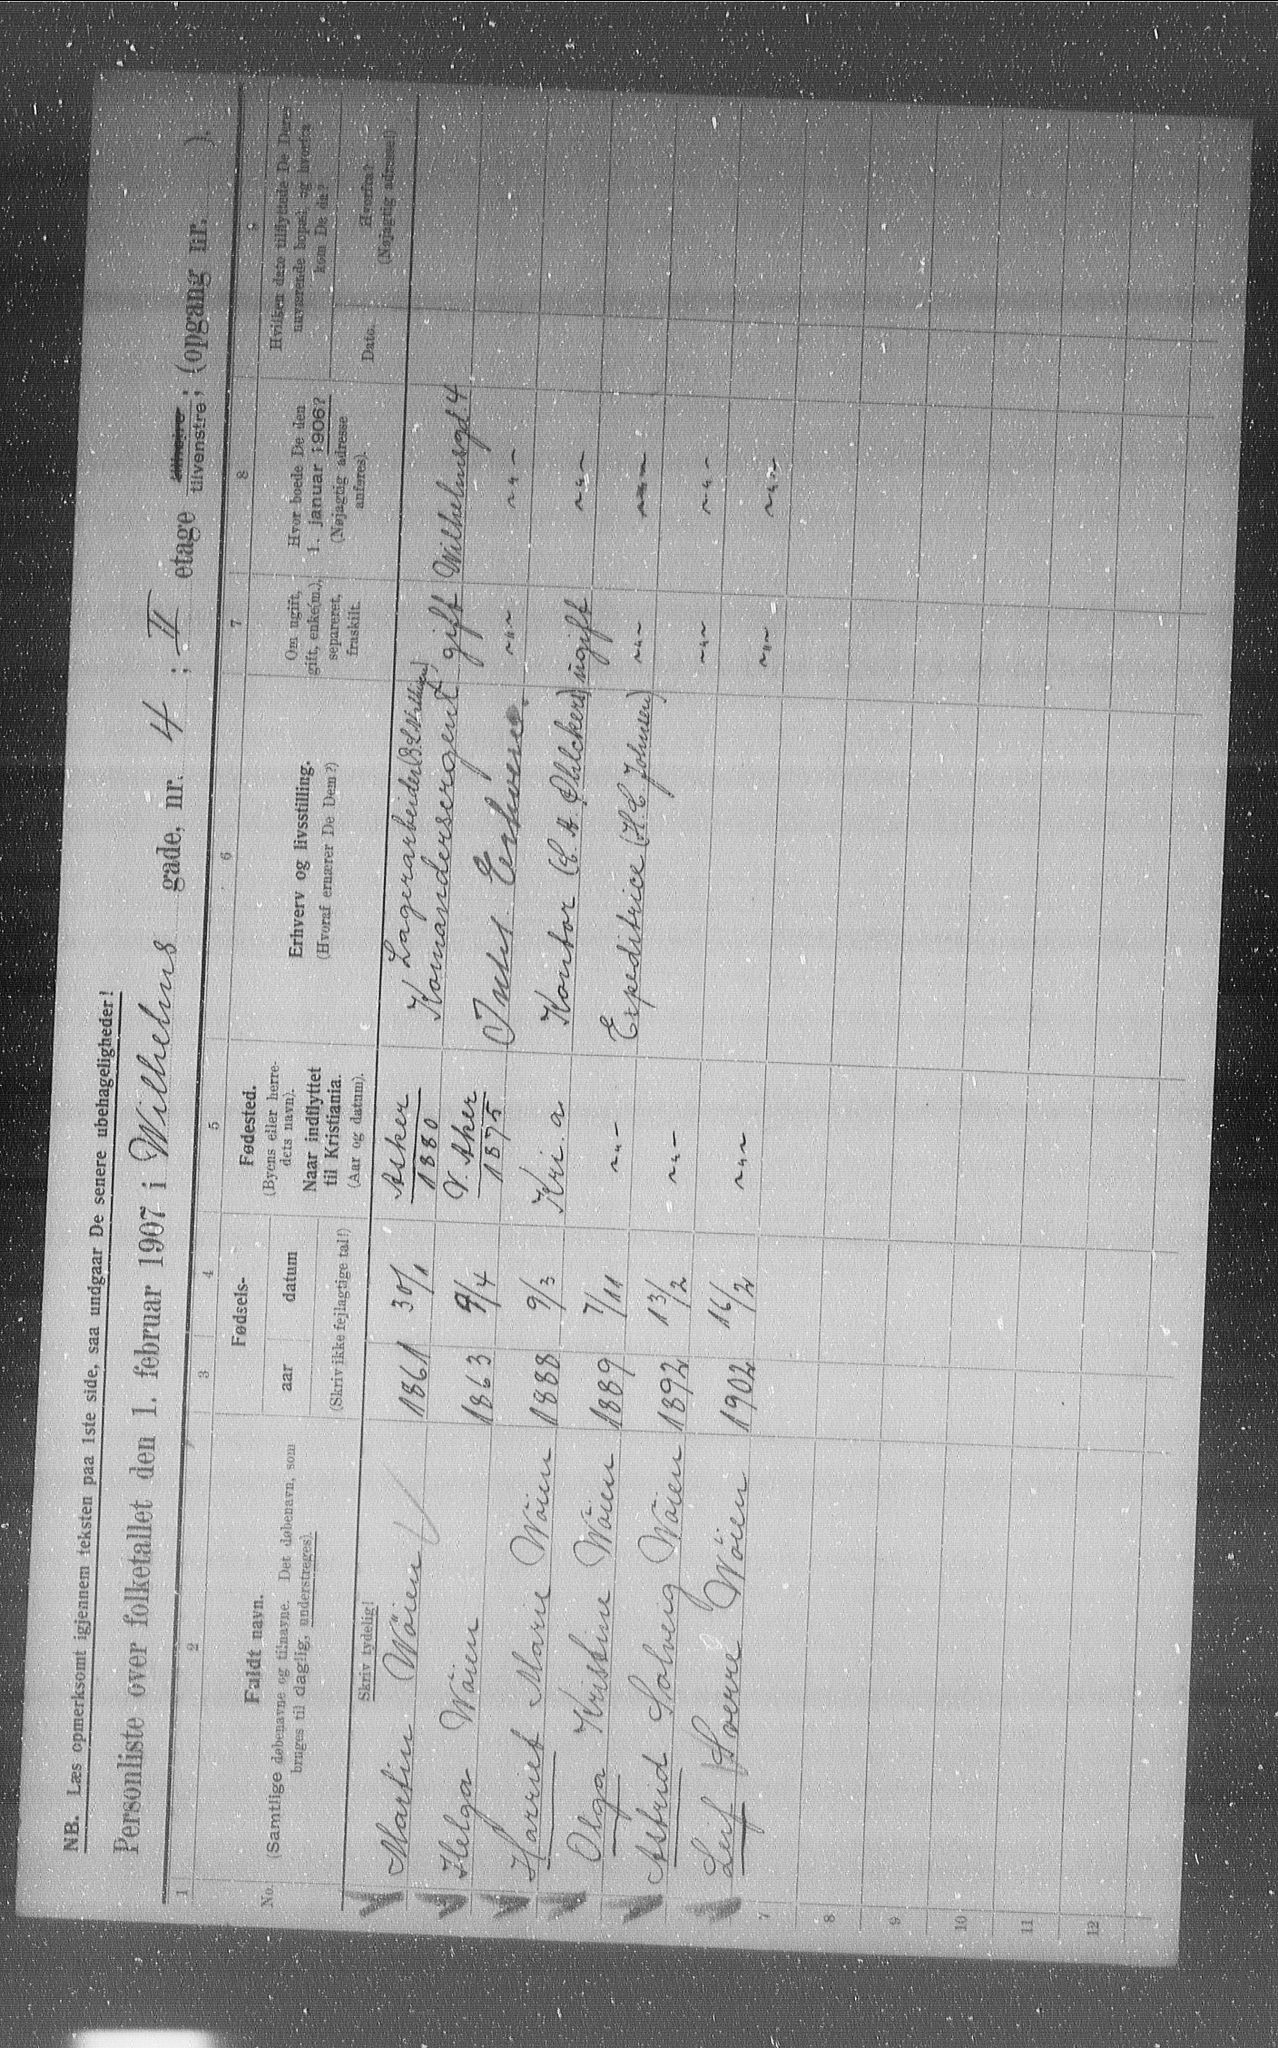 NB. Læs opmerksomt igjennem teksten paa 1ste side, saa undgaar De senere ubehageligheder!
Personliste over folketallet den 1. februar 1907 i Wilhelms gade, nr. 4 ; II etage tilhøjre tilvenstre ; (opgang nr. ).
1 2 3 4 5 6 7 8 9
No.
Fuldt navn.
(Samtlige døbenavne og tilnavne. Det døbenavn, som
bruges til daglig, understreges).
Skriv tydelig!
Fødsels-
aar datum
(Skriv ikke fejlagtige tal!)
Fødested.
(Byens eller herre-
dets navn).
Naar indflyttet
til Kristiania.
(Aar og datum).
Erhverv og livsstilling.
(Hvoraf ernærer De Dem?)
Om ugift,
gift, enke(m.),
separeret,
fraskilt.
Hvor boede De den
1. januar 1906?
(Nøjagtig adresse
anføres).
Hvilken dato tilflyttede De Deres
nuværende bopæl, og hvorfra
kom De da?
Dato.
Hvorfra?
(Nøjagtig adresse!)
Martin Wöien 1861 30/1 Asker 1880 Lagerarbeider Komandersergent gift Wilhelmsgd. 4
Helga Wöien 1863 9/4 V. Aker 1875 Intet Erhverv. -"- -"-
Harriet Marie Wöien 1888 9/3 Kri.a Kontor ugift -"-
Olga Kristine Wöien 1889 7/11 -"- Expeditrice (H. C. Johnsen) -"- -"-
Astrid Solveig Wöien 1892 13/2 -"- -"- -"-
Leif Sverre Wöien 1902 16/2 -"- -"- -"-
7
8
9
10
11
12